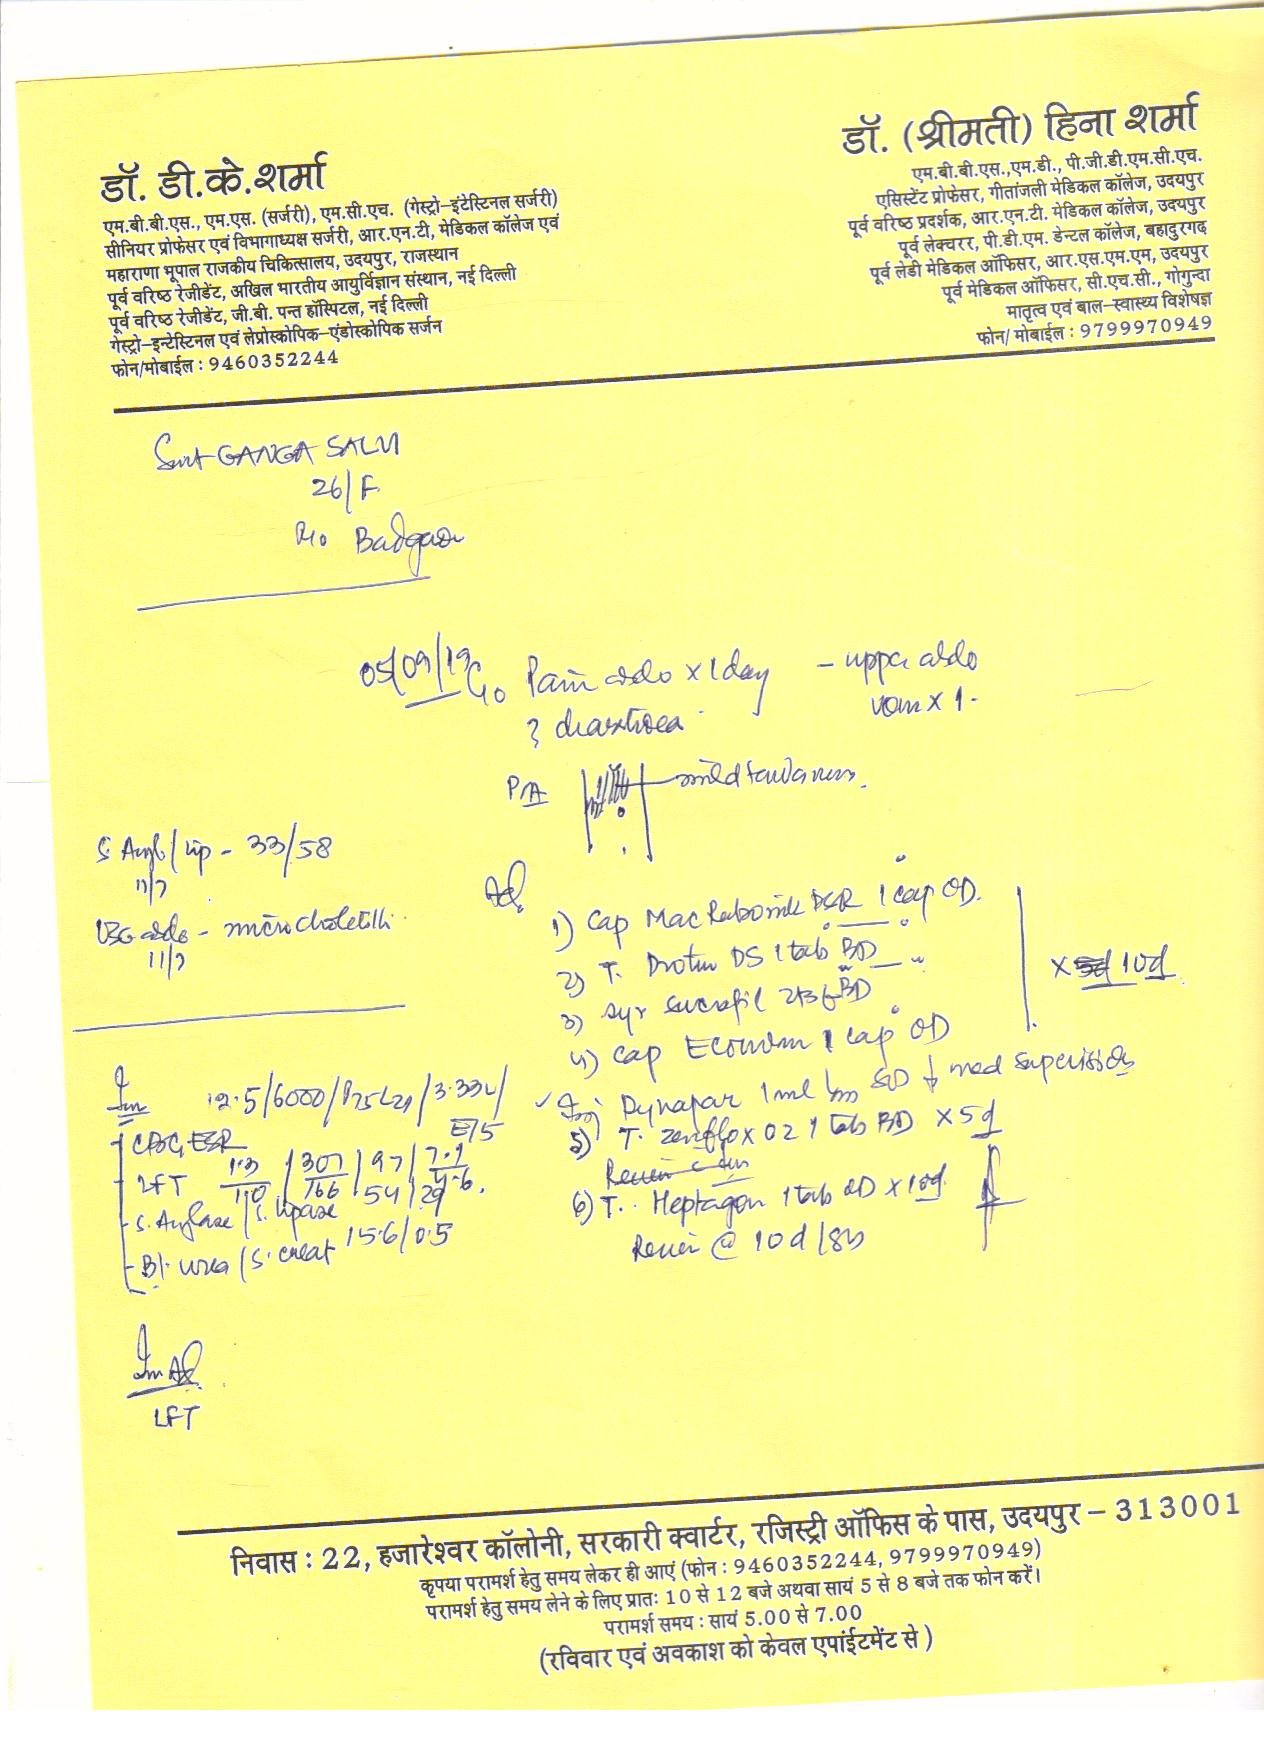 डॉ. डी.के.शर्मा
एम.बी.बी.एस., एम.एस. (सर्जरी), एम.सी.एच. (गेस्ट्रो-इंटेस्टिनल सर्जरी)
सीनियर प्रोफेसर एवं विभागाध्यक्ष सर्जरी, आर.एन.टी, मेडिकल कॉलेज एवं
महाराणा भूपाल राजकीय चिकित्सालय, उदयपुर, राजस्थान
पूर्व वरिष्ठ रेजीडेंट, अखिल भारतीय आयुर्विज्ञान संस्थान, नई दिल्ली
पूर्व वरिष्ठ रेजीडेंट, जी.बी. पन्त हॉस्पिटल, नई दिल्ली
गेस्ट्रो-इन्टेस्टिनल एवं लेप्रोस्कोपिक-एंडोस्कोपिक सर्जन
फोन/मोबाईल : 9460352244
डॉ. (श्रीमती) हिना शर्मा
एम.बी.बी.एस.,एम.डी., पी.जी.डी.एम.सी.एच.
एसिस्टेंट प्रोफेसर, गीतांजली मेडिकल कॉलेज, उदयपुर
पूर्व वरिष्ठ प्रदर्शक, आर.एन.टी. मेडिकल कॉलेज, उदयपुर
पूर्व लेक्चरर, पी.डी.एम. डेन्टल कॉलेज, बहादुरगढ़
पूर्व लेडी मेडिकल ऑफिसर, आर.एस.एम.एम, उदयपुर
पूर्व मेडिकल ऑफिसर, सी.एच.सी., गोगुन्दा
मातृत्व एवं बाल-स्वास्थ्य विशेषज्ञ
फोन/ मोबाईल : 9799970949
Smt GANGA SALVI
26/F
R/o Badgaon
05/09/19 C/o Pain abdo x 1 day - upper abdo
vom x 1.
? diarrhoea
P/A mild tenderness.
S. Amyl/Lip - 33/58
11/7
USG abdo - microcholelithi
11/7
Adv
1) Cap Mac Rabonik DSR 1 cap OD.
2) T. Drotin DS 1 tab BD
3) Syr Sucrafil 2tsf BD
4) Cap Econorm 1 cap OD
x 5d 10d
Inj Dynapar 1ml im SOS med supervision
5) T. Zenflox OZ 1 tab BD x 5d
Review
6) T. Heptagon 1 tab OD x 10d
Review @ 10d/SOS
Inv 12.5/6000/P75L21/3.33L/
E/5
CBC, ESR
LFT 1.3/1.0 / 307/166 / 97/54 / 7.1/4.6
S. Amylase/S. lipase 29
Bl. urea/S. creat 15.6/0.5
Inv Adv
LFT
निवास : 22, हजारेश्वर कॉलोनी, सरकारी क्वार्टर, रजिस्ट्री ऑफिस के पास, उदयपुर - 313001
कृपया परामर्श हेतु समय लेकर ही आएं (फोन : 9460352244, 9799970949)
परामर्श हेतु समय लेने के लिए प्रातः 10 से 12 बजे अथवा सायं 5 से 8 बजे तक फोन करें।
परामर्श समय : सायं 5.00 से 7.00
(रविवार एवं अवकाश को केवल एपांईटमेंट से )